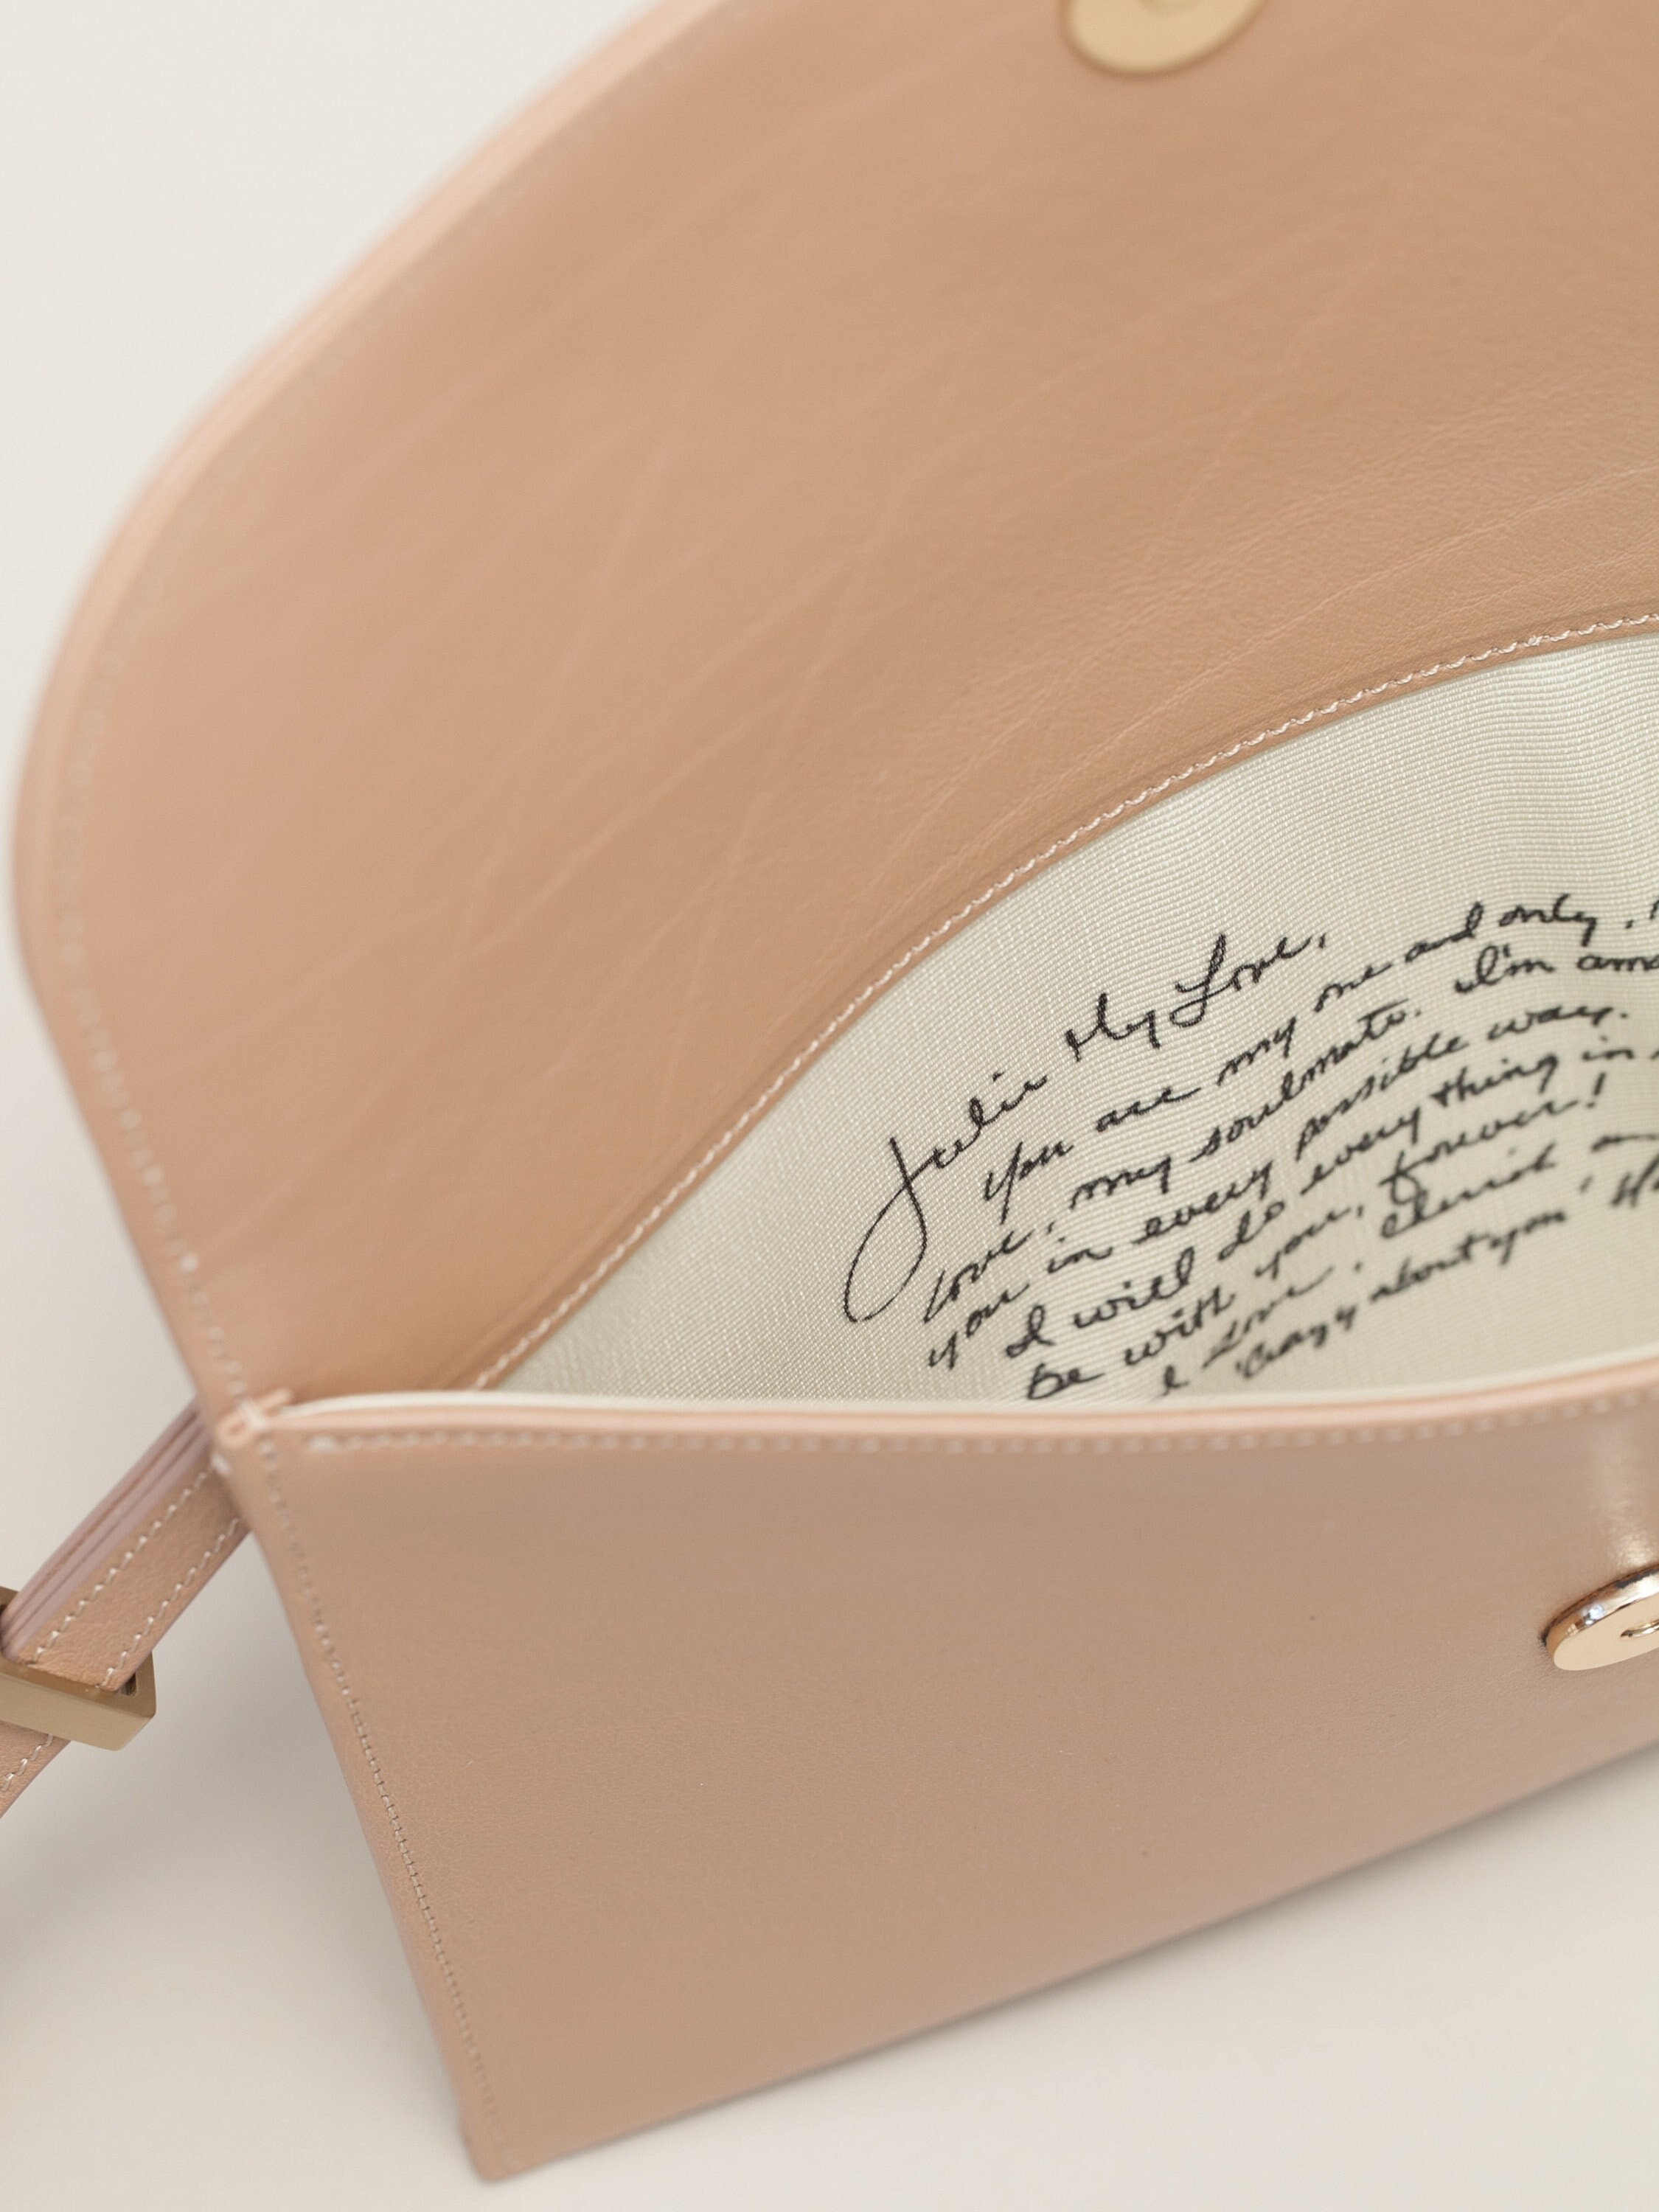 Julie My Love,
You are my one and only,
love, my soulmate. I'm
you in every possible way.
I will do everything in
be with you, forever!
I Love, Cherish
'Crazy about you'